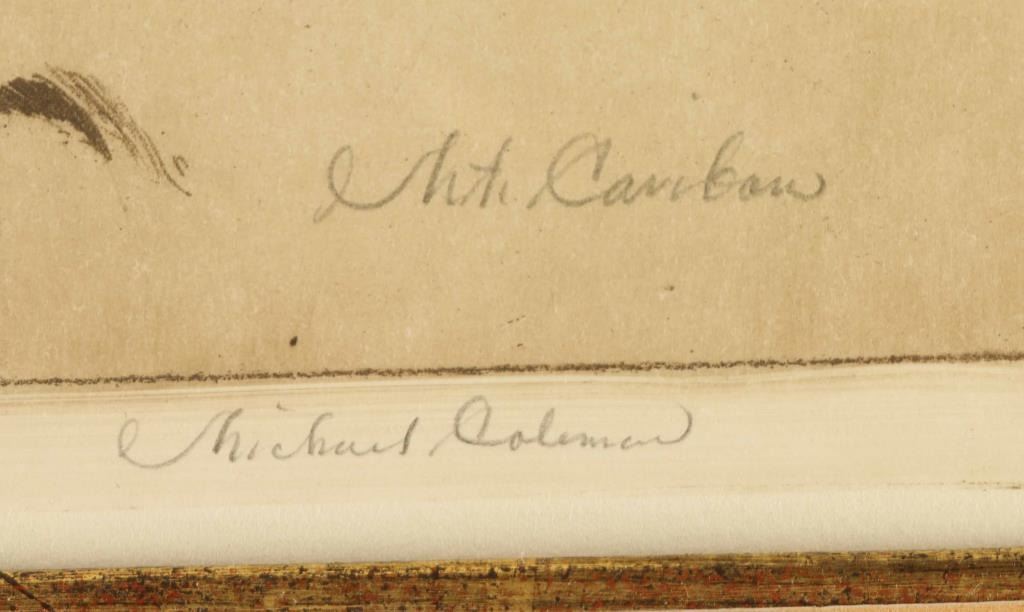 Mt. Caribou
Michael Coleman